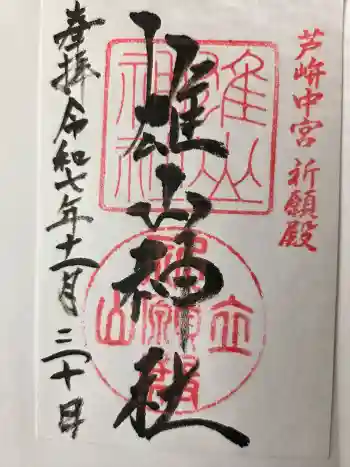 芦峅中宮 祈願殿
雄山神社
奉拝 令和七年十一月三十日
雄山神社
立山祈願殿